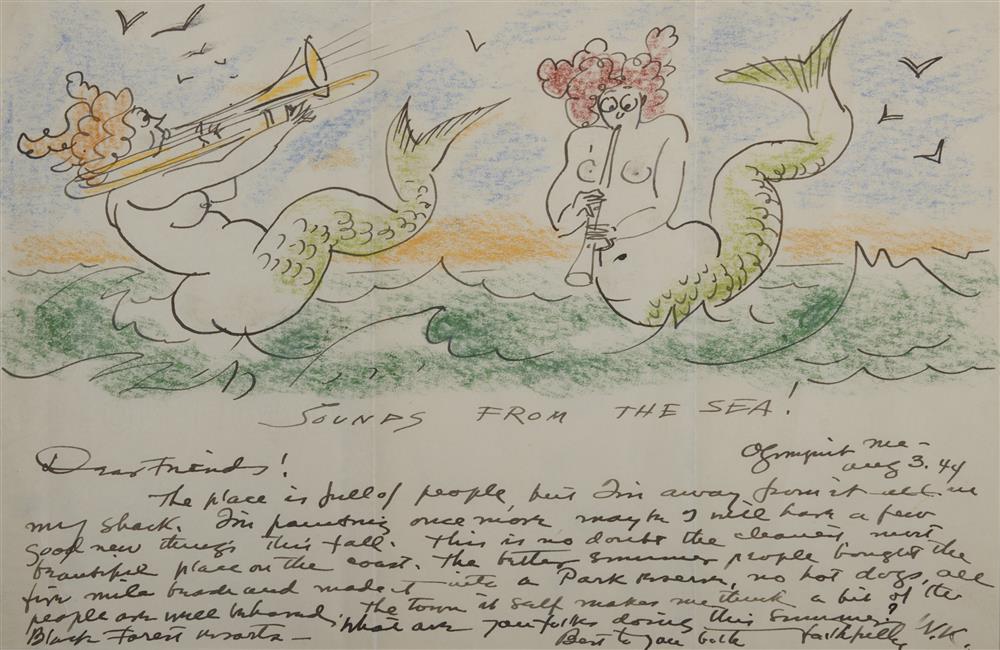 SOUNDS FROM THE SEA!
Ogunquit Me-
Aug 3. 44
Dear Friends!
The place is full of people, but I'm away from it all in
my shack. I'm painting once more maybe I will have a few
good new things this fall. This is no doubt the cleanest, most
beautiful place on the coast. The better summer people bought the
five mile beach and made it into a Park reserve, no hot dogs, all
people are well behaved, The town it self makes me think a bit of the
Black Forest resorts – What are you folks doing this summer?
Best to you both faithfully W.K.